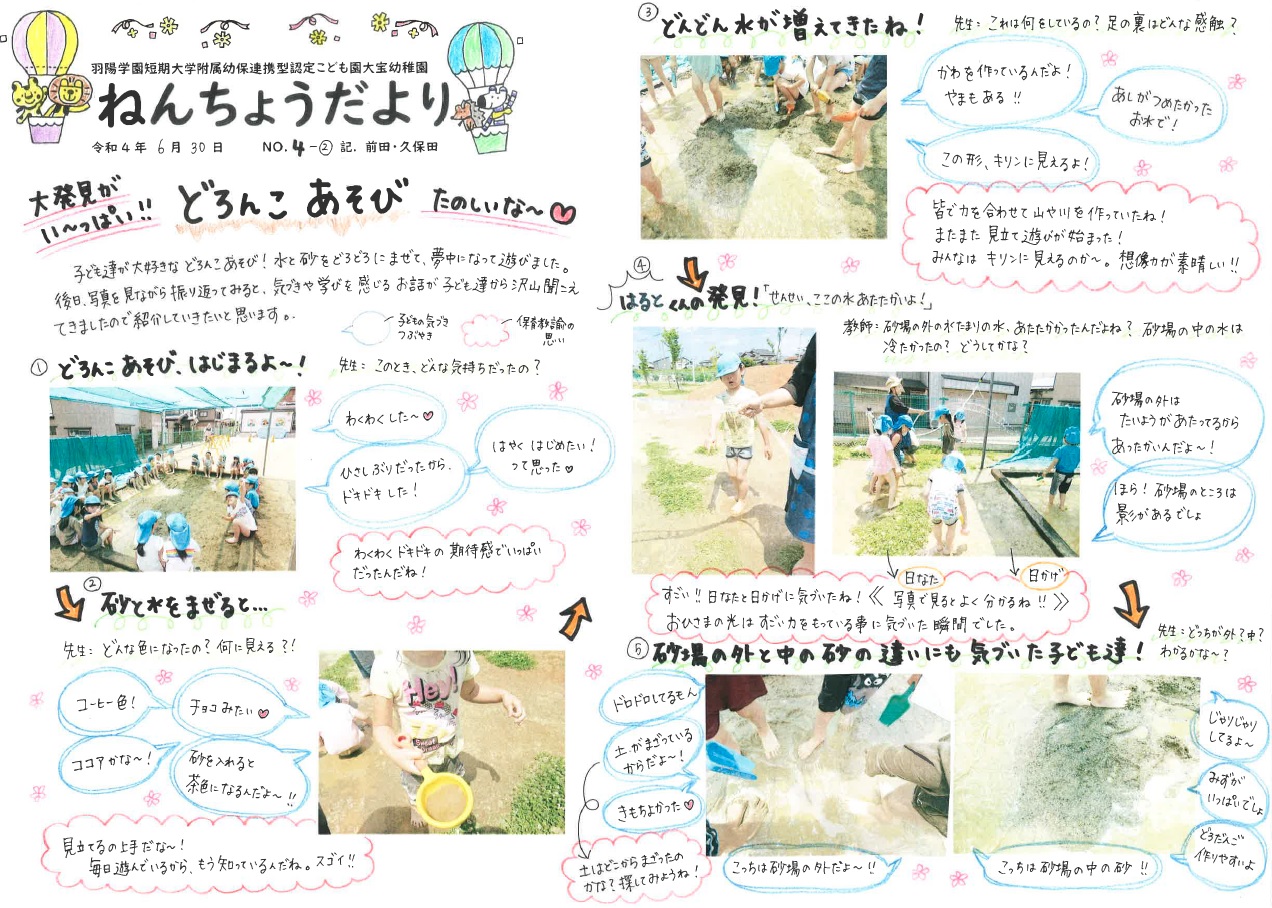 羽陽学園短期大学附属幼保連携型認定こども園大宝幼稚園
ねんちょうだより
令和4年 6月 30日 NO.4-② 記. 前田・久保田
大発見が
い〜っぱい!!
どろんこ あそび
たのしいな〜♥
子ども達が大好きな どろんこあそび! 水と砂をどろどろにまぜて、夢中になって遊びました。
後日、写真を見ながら振り返ってみると、気づきや学びを感じるお話が子ども達から沢山聞こえ
てきましたので紹介していきたいと思います。
子どもの気づき
つぶやき
保育教諭の
思い
① どろんこ あそび、はじまるよ〜!
先生: このとき、どんな気持ちだったの?
わくわくした〜♥
ひさしぶりだったから、
ドキドキした!
はやく はじめたい!
って思った♥
わくわくドキドキの 期待感でいっぱい
だったんだね!
② 砂と水をまぜると…
先生: どんな色になったの? 何に見える?!
コーヒー色!
チョコみたい♥
ココアかな〜!
砂を入れると
茶色になるんだよ〜!!
見立てるの上手だな〜!
毎日遊んでいるから、もう知っているんだね。スゴイ!!
Hey!
③ どんどん水が増えてきたね!
先生: これは何をしているの? 足の裏はどんな感触?
かわを作っているんだよ!
やまもある!!
あしがつめたかった
お水で!
この形、キリンに見えるよ!
皆で力を合わせて山や川を作っていたね!
またまた 見立て遊びが始まった!
みんなは キリンに見えるのか〜。想像力が素晴しい!!
④
はるとくんの発見!「せんせい、ここの水あたたかいよ!」
教師: 砂場の外の水たまりの水、あたたかかったんだよね? 砂場の中の水は
冷たかったの? どうしてかな?
砂場の外は
たいようがあたってるから
あったかいんだよ〜!
ほら! 砂場のところは
影があるでしょ
日なた
日かげ
すごい!! 日なたと日かげに気づいたね!《 写真で見るとよく分かるね!! 》
おひさまの光は すごい力をもっている事に気づいた瞬間でした。
⑤ 砂場の外と中の砂の違いにも 気づいた子ども達!
先生: どっちが外? 中?
わかるかな〜?
ドロドロしてるもん
土がまざっている
からだよ〜!
きもちよかった♥
土はどこからまざったの
かな? 探してみようね!
こっちは砂場の外だよ〜!!
こっちは砂場の中の砂!!
じゃりじゃり
してるよ〜
みずが
いっぱいでしょ
どろだんご
作りやすいよ